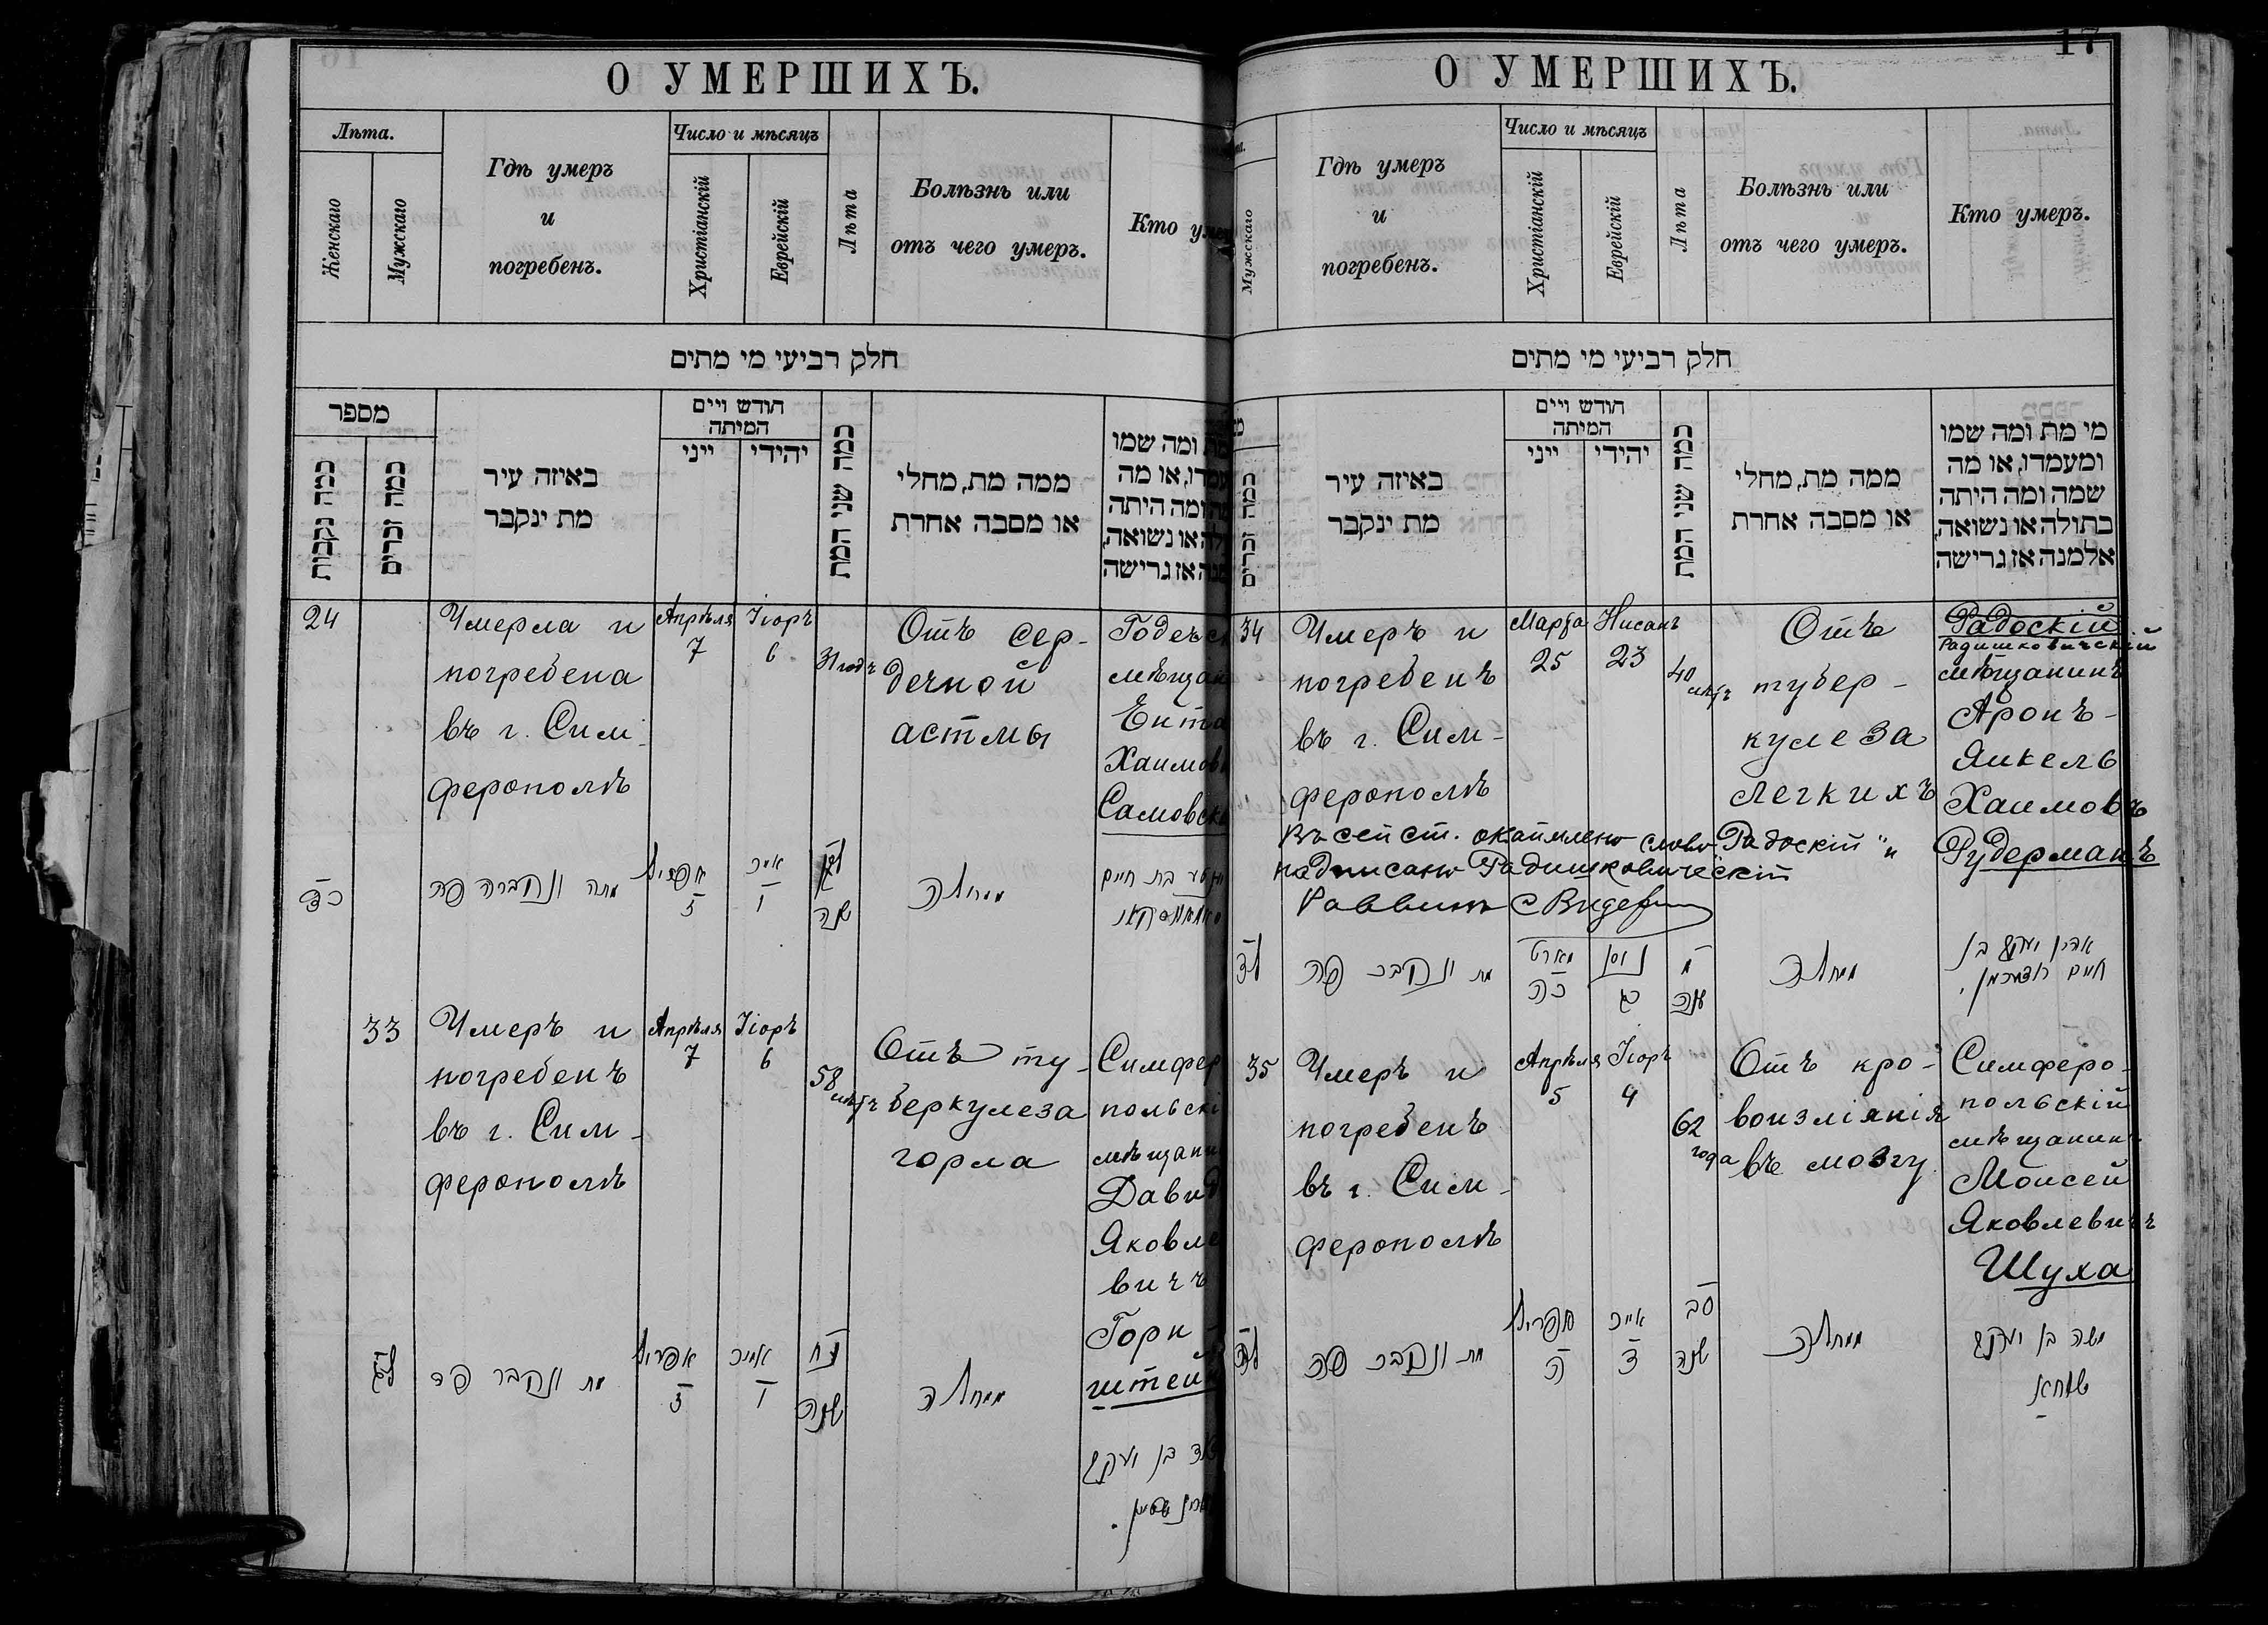 О УМЕРШИХЪ.
Лѣта.
Женскаго
Мужскаго
Гдѣ умеръ
и
погребенъ.
Число и мѣсяцъ
Христіанскій
Еврейскій
Лѣта
Болѣзнь или
отъ чего умеръ.
Кто
חלק רביעי מי מתים
מספר
כמה נקבות
כמה זכרים
באיזה עיר
מת ינקבר
חודש ויים
המיתה
ייני
יהידי
כמה שני המת
ממה מת, מחלי
או מסבה אחרת
ומה שמו
או מה
ומה היתה
או נשואה,
אז גרישה
24
Умерла и
погребена
въ г. Сим-
ферополѣ
Апрѣля
7
Іюръ
6
31 годъ
Отъ сер-
дечной
астмы
כד
מתה ונקברה פה
אפריל
ז
אייר
ו
לא
שנה
ממחלה
בת חיים
33
Умеръ и
погребенъ
въ г. Сим-
ферополѣ
Апрѣля
7
Іюръ
6
58
лѣтъ
Отъ ту-
беркулеза
горла
Симфер
польскі
мѣщани
Давид
Яковле
вичъ
Горн-
штейн
לג
מת ונקבר פה
אפריל
ז
אייר
ו
נח
שנה
ממחלה
בן יעקב
17
О УМЕРШИХЪ.
Мужскаго
Гдѣ умеръ
и
погребенъ.
Число и мѣсяцъ
Христіанскій
Еврейскій
Лѣта
Болѣзнь или
отъ чего умеръ.
Кто умеръ.
חלק רביעי מי מתים
כמה זכרים
באיזה עיר
מת ינקבר
חודש ויים
המיתה
ייני
יהידי
כמה שני המת
ממה מת, מחלי
או מסבה אחרת
מי מת ומה שמו
ומעמדו, או מה
שמה ומה היתה
בתולה או נשואה,
אלמנה אז גרישה
34
Умеръ и
погребенъ
въ г. Сим-
ферополѣ
Марта
25
Нисанъ
23
40
лѣтъ
Отъ
тубер-
кулеза
легкихъ
Радоскій
Радишковичскій
мѣщанинъ
Аронъ-
Янкель
Хаимовъ
Рудерманъ
Въ сей ст. окаймлено слово "Радоскій" и
надписано "Радишковическій"
Раввинъ
לד
מת ונקבר פה
מארט
כה
ניסן
כג
מ
שנה
ממחלה
אהרן יעקב בן
חיים רודערמאן.
35
Умеръ и
погребенъ
въ г. Сим-
ферополѣ
Апрѣля
5
Іюръ
4
62
года
Отъ кро-
воизліянія
въ мозгу
Симферо-
польскій
мѣщанинъ
Моисей
Яковлевичъ
Шуха
לה
מת ונקבר פה
אפריל
ה
אייר
ד
סב
שנה
ממחלה
משה בן יעקב
שוחא